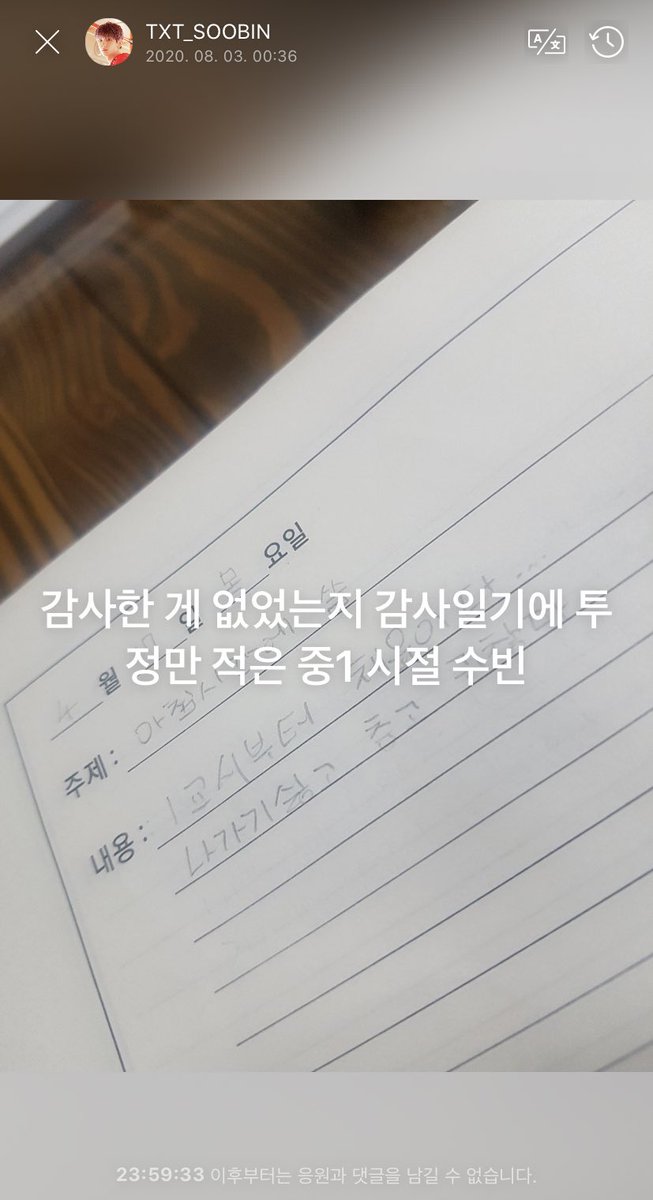 TXT_SOOBIN
2020. 08. 03. 00:36
감사한 게 없었는지 감사일기에 투
정만 적은 중1 시절 수빈
4 월 일 목 요일
주제 :
내용 : 1교시부터
나가기싫고 춥고
23:59:33 이후부터는 응원과 댓글을 남길 수 없습니다.